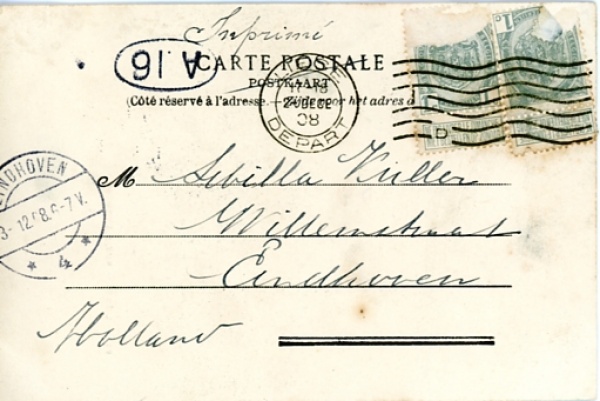 Imprimé
A.16
CARTE POSTALE
POSTKAART
(Côté réservé à l'adresse.—Zijde voor het adres
2 DEC
08
DEPART
1c
1c
EINDHOVEN
3-12.08.6-7 V.
4
M Sibilla Kuller
Willemstraat
Eindhoven
Holland